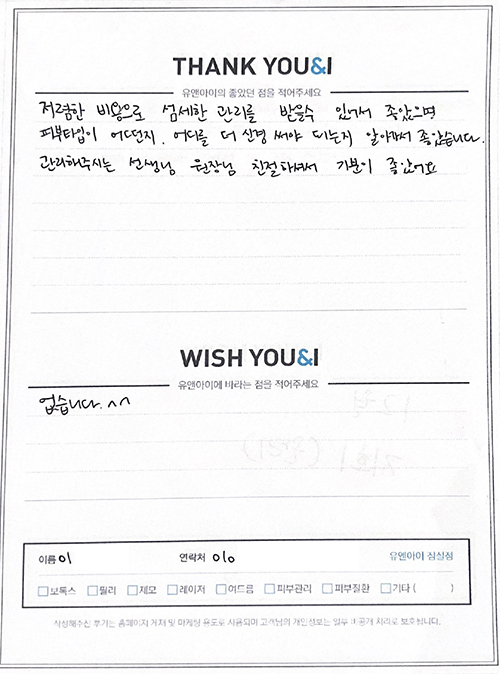 THANK YOU&I
유앤아이의 좋았던 점을 적어주세요
저렴한 비용으로 섬세한 관리를 받을수 있어서 좋았으며
피부타입이 어떤지, 어디를 더 신경 써야 되는지 알아가서 좋았습니다.
관리해주시는 선생님 원장님 친절하셔서 기분이 좋았어요
WISH YOU&I
유앤아이에 바라는 점을 적어주세요
없습니다.^^
이름 이 연락처 010 유앤아이 잠실점
보톡스 필러 제모 레이저 여드름 피부관리 피부질환 기타 ( )
작성해주신 후기는 홈페이지 게재 및 마케팅 용도로 사용되며 고객님의 개인정보는 일부 비공개 처리로 보호됩니다.